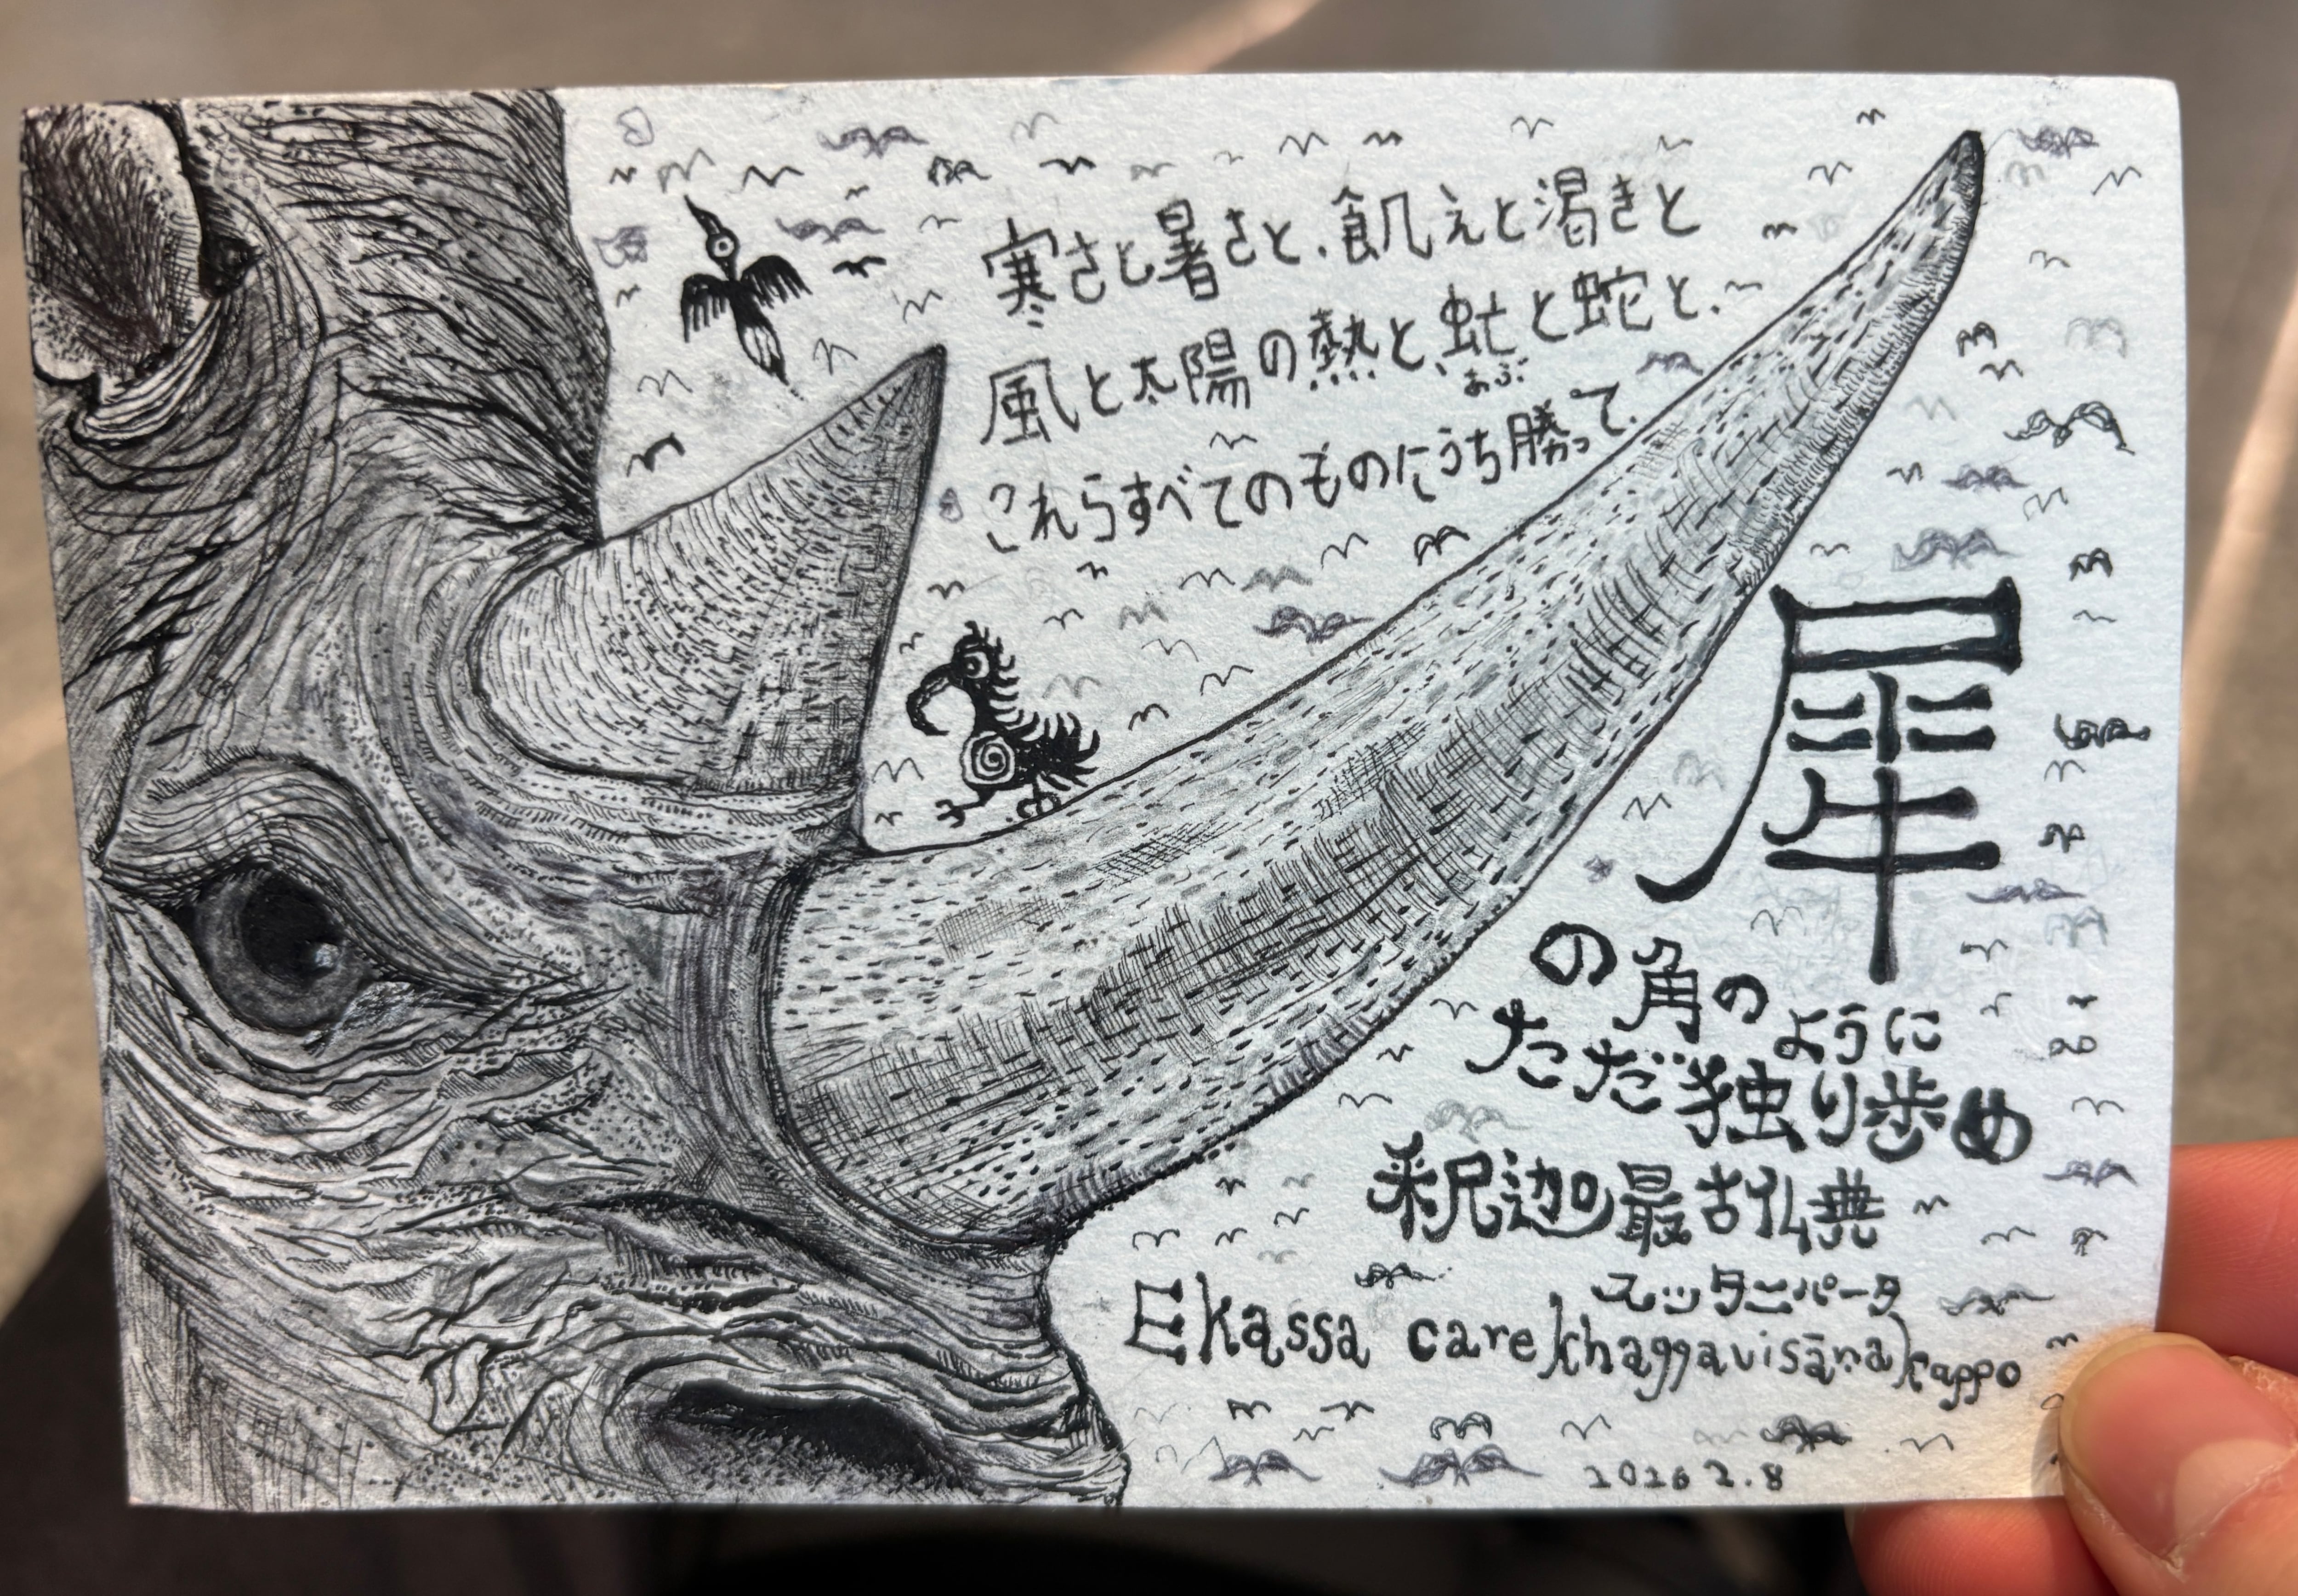 寒さと暑さと、飢えと渇きと
風と太陽の熱と、虻と蛇と、
あぶ
これらすべてのものにうち勝って、
犀
の角のように
ただ独り歩め
釈迦最古仏典
スッタニパータ
Ekassa care khaggavisāṇa kappo
2026 2.8